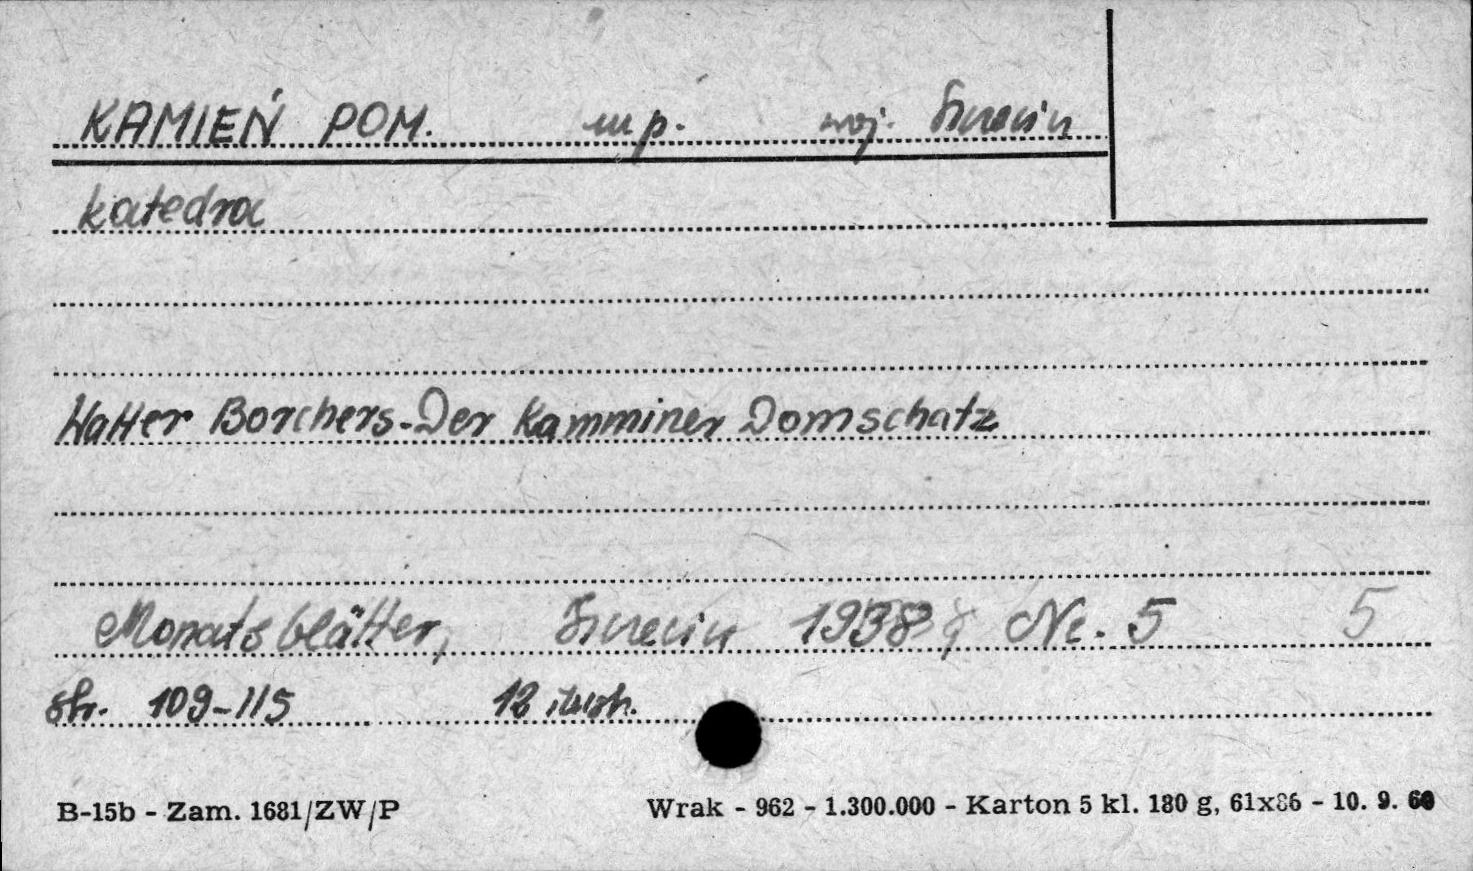 KAMIEŃ POM. m p. woj. Szczecin
katedra
Walter Borchers - Der Kamminer Domschatz
Monatsblätter, Szczecin 1938 Nr. 5 5
str. 109-115 12 ilustr.
B-15b - Zam. 1681/ZW/P Wrak - 962 - 1.300.000 - Karton 5 kl. 180 g, 61x86 - 10. 9. 60